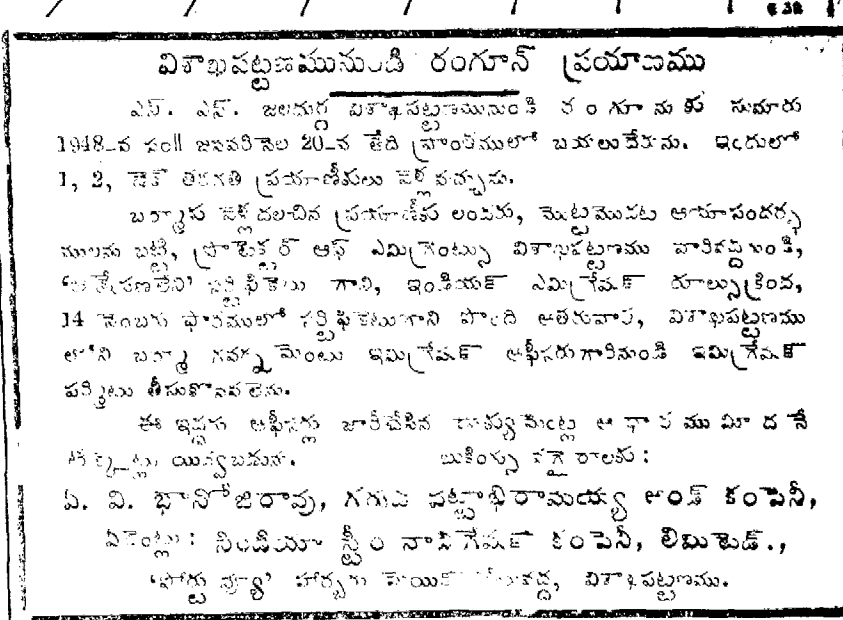 విశాఖపట్టణమునుండి రంగూన్ ప్రయాణము
ఎస్. ఎస్. జలదుర్గ విశాఖపట్టణమునుండి రంగూనుకు సుమారు
1948-వ సం॥ జనవరినెల 20-వ తేది ప్రాంతములో బయలుదేరును. ఇందులో
1, 2, డెక్ తరగతి ప్రయాణీకులు వెళ్లవచ్చును.
బర్మాకు వెళ్లదలచిన ప్రయాణీకు లందరు, మొట్టమొదట ఆయాసందర్భ
ములను బట్టి, ప్రొటెక్టర్ ఆఫ్ ఎమిగ్రెంట్సు విశాఖపట్టణము వారివద్దనుండి,
‘ఆక్షేపణలేని’ సర్టిఫికెటు గాని, ఇండియన్ ఎమిగ్రేషన్ రూల్సుక్రింద,
14 నెంబరు ఫారములో సర్టిఫికెటుగాని పొంది తరువాత, విశాఖపట్టణము
లోని బర్మా గవర్నమెంటు ఇమిగ్రేషన్ ఆఫీసరుగారినుండి ఇమిగ్రేషన్
పర్మిటు తీసుకొనవలెను.
ఈ ఇద్దరు ఆఫీసర్లు జారీచేసిన డాక్యుమెంట్ల ఆధారముమీదనే
టిక్కెట్లు యివ్వబడును. బుకింగ్సు వగైరాలకు :
ఏ. వి. భానోజీరావు, గరుడ పట్టాభిరామయ్య అండ్ కంపెనీ,
ఏజెంట్లు : సిండియా స్టీం నావిగేషన్ కంపెనీ, లిమిటెడ్.,
‘పోర్టు వ్యూ’ హార్బరు మెయిన్ విశాఖపట్టణము.